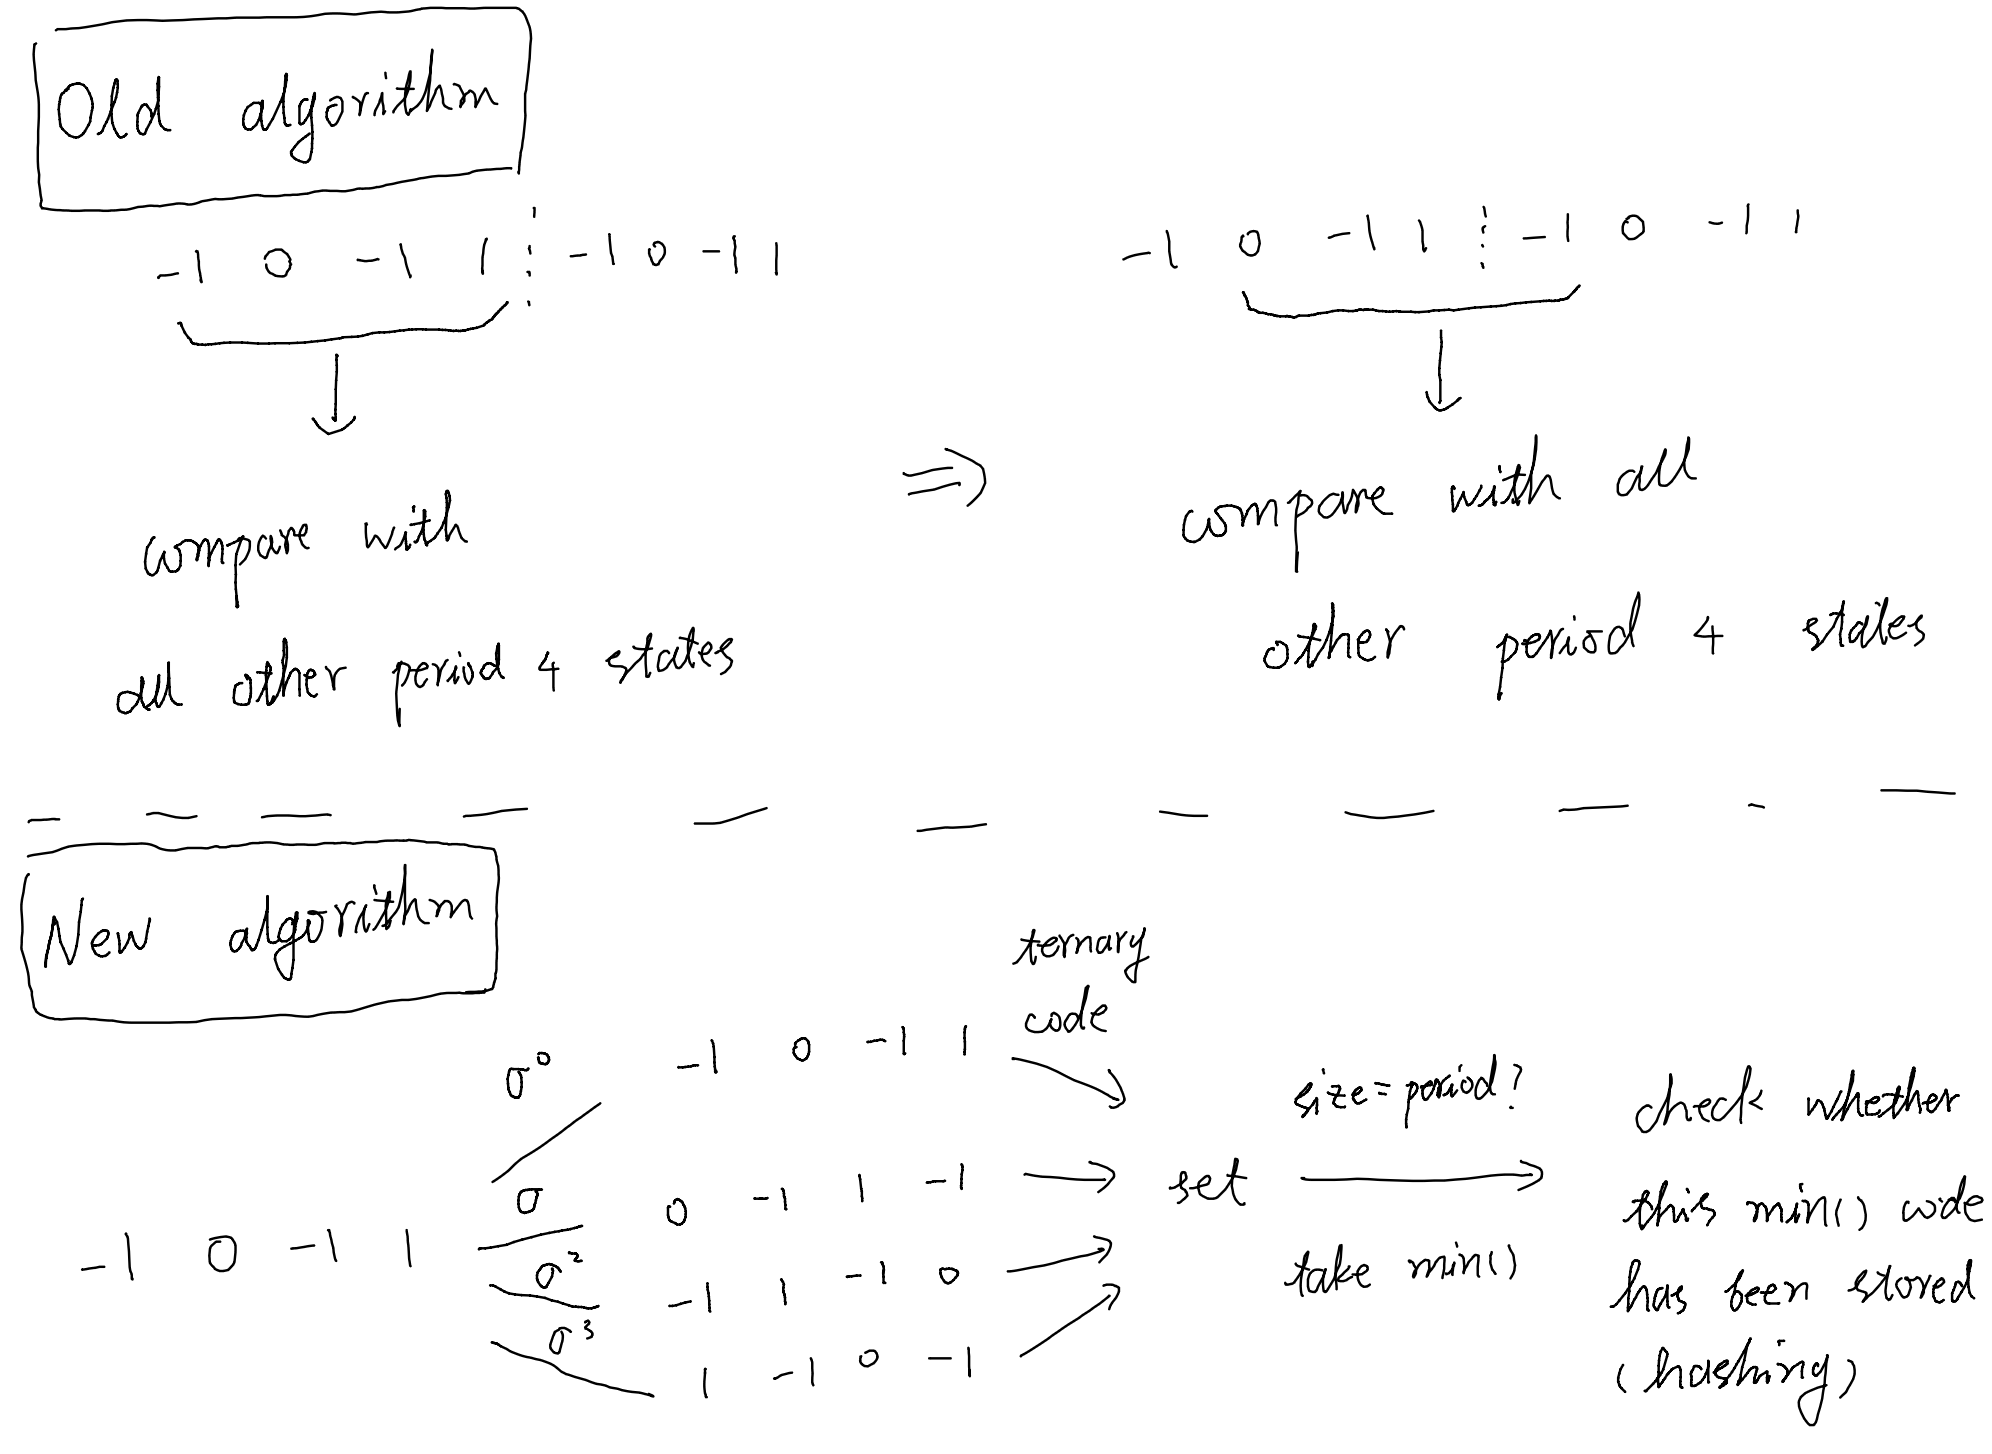 Old algorithm
-1 0 -1 1 ⋮ -1 0 -1 1
compare with
all other period 4 states
⇒
-1 0 -1 1 ⋮ -1 0 -1 1
compare with all
other period 4 states
New algorithm
-1 0 -1 1
σ⁰ -1 0 -1 1
σ 0 -1 1 -1
σ² -1 1 -1 0
σ³ 1 -1 0 -1
ternary
code
set
size = period?
take min()
check whether
this min() code
has been stored
(hashing)